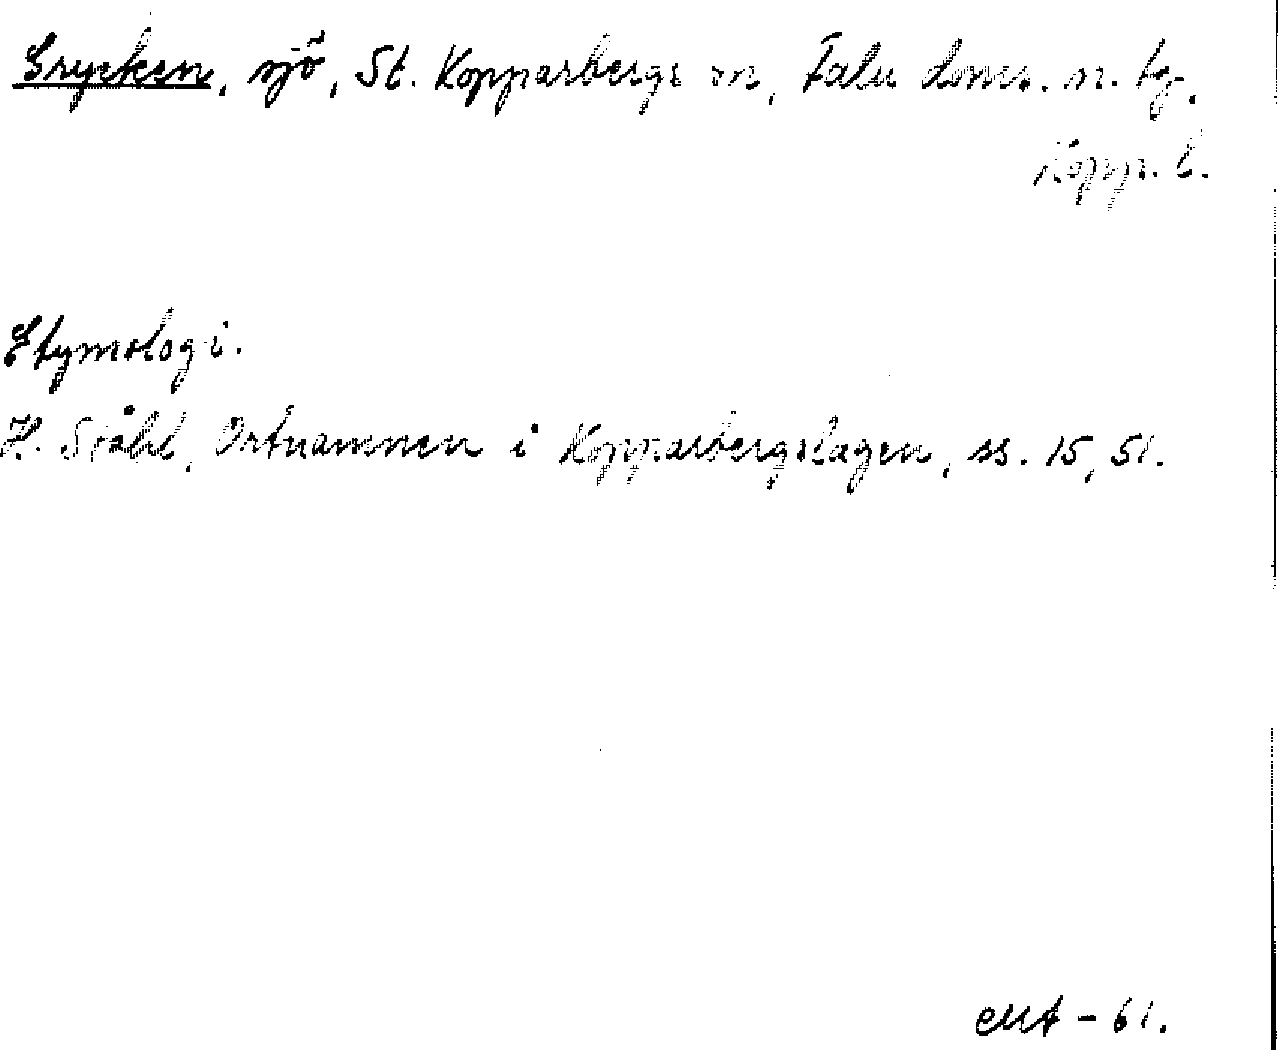 Grycken, sjö, St. Kopparbergs sn, Falu doms. n. tg.
Kopp. l.
Etymologi.
H. Ståhl, Ortnamnen i Kopparbergslagen, ss. 15, 51.
EMA - 61.